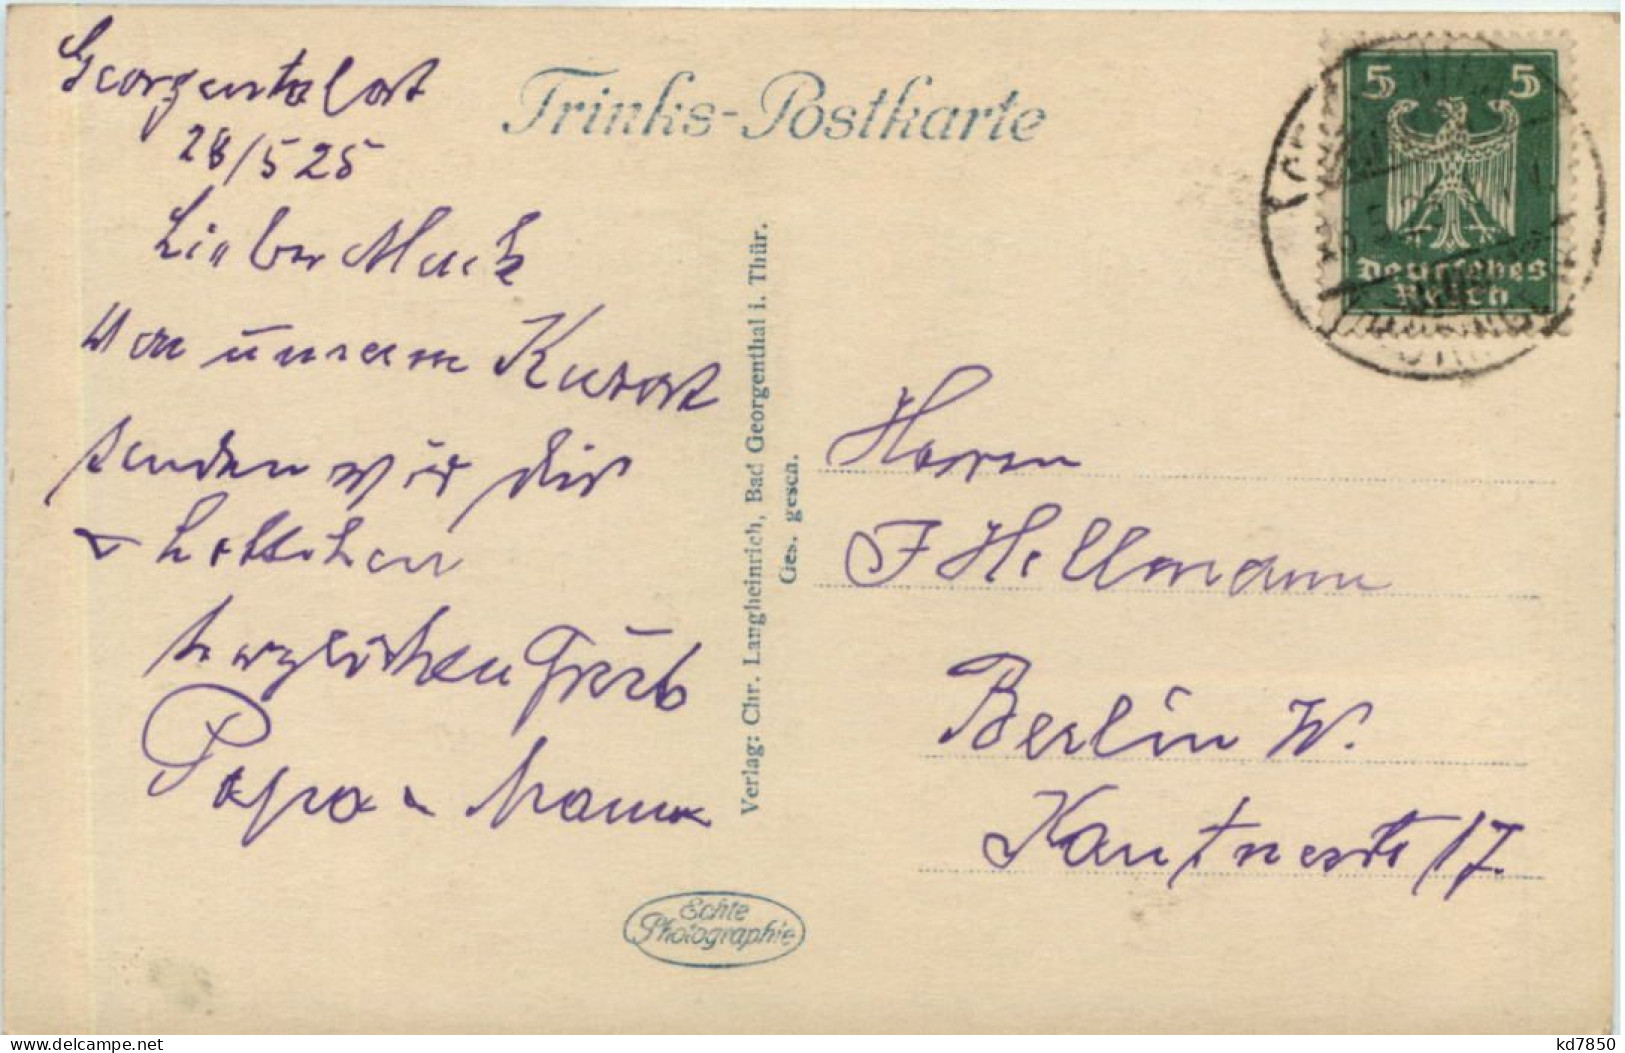 Georgental
28/5 25
Lieber
Von unserem Kurort
senden wir Dir
Lottchen
herzlichen Gruß
Papa u Mama
Trinks-Postkarte
Verlag: Chr. Langheinrich, Bad Georgenthal i. Thür.
Ges. gesch.
Echte
Photographie
5 5
Deutsches
Reich
Herrn
F Hellmann
Berlin W.
17.
delcampe.net
kd7850